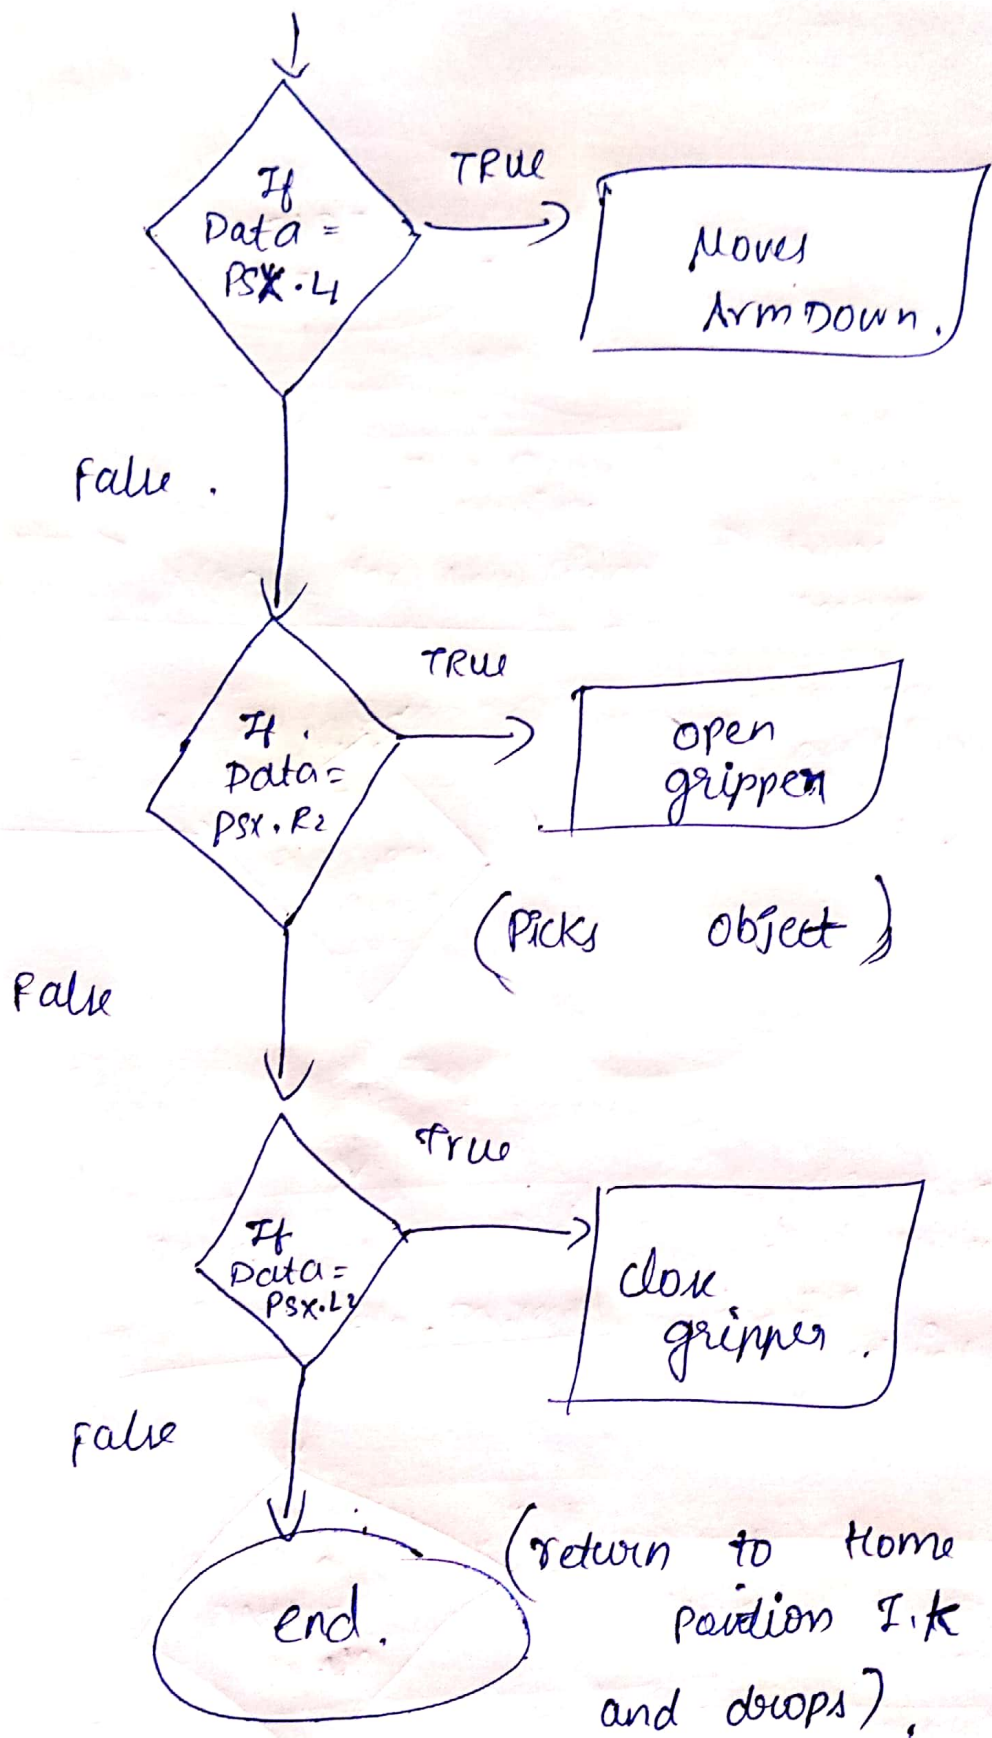 If
Data =
PSX.L1
TRUE
Moves
Arm Down.
False.
If.
Data=
PSX.R2
TRUE
open
gripper
(Picks object)
False
If
Data=
PSX.L2
True
close
gripper.
False
end.
(return to Home
position I.k
and drops).